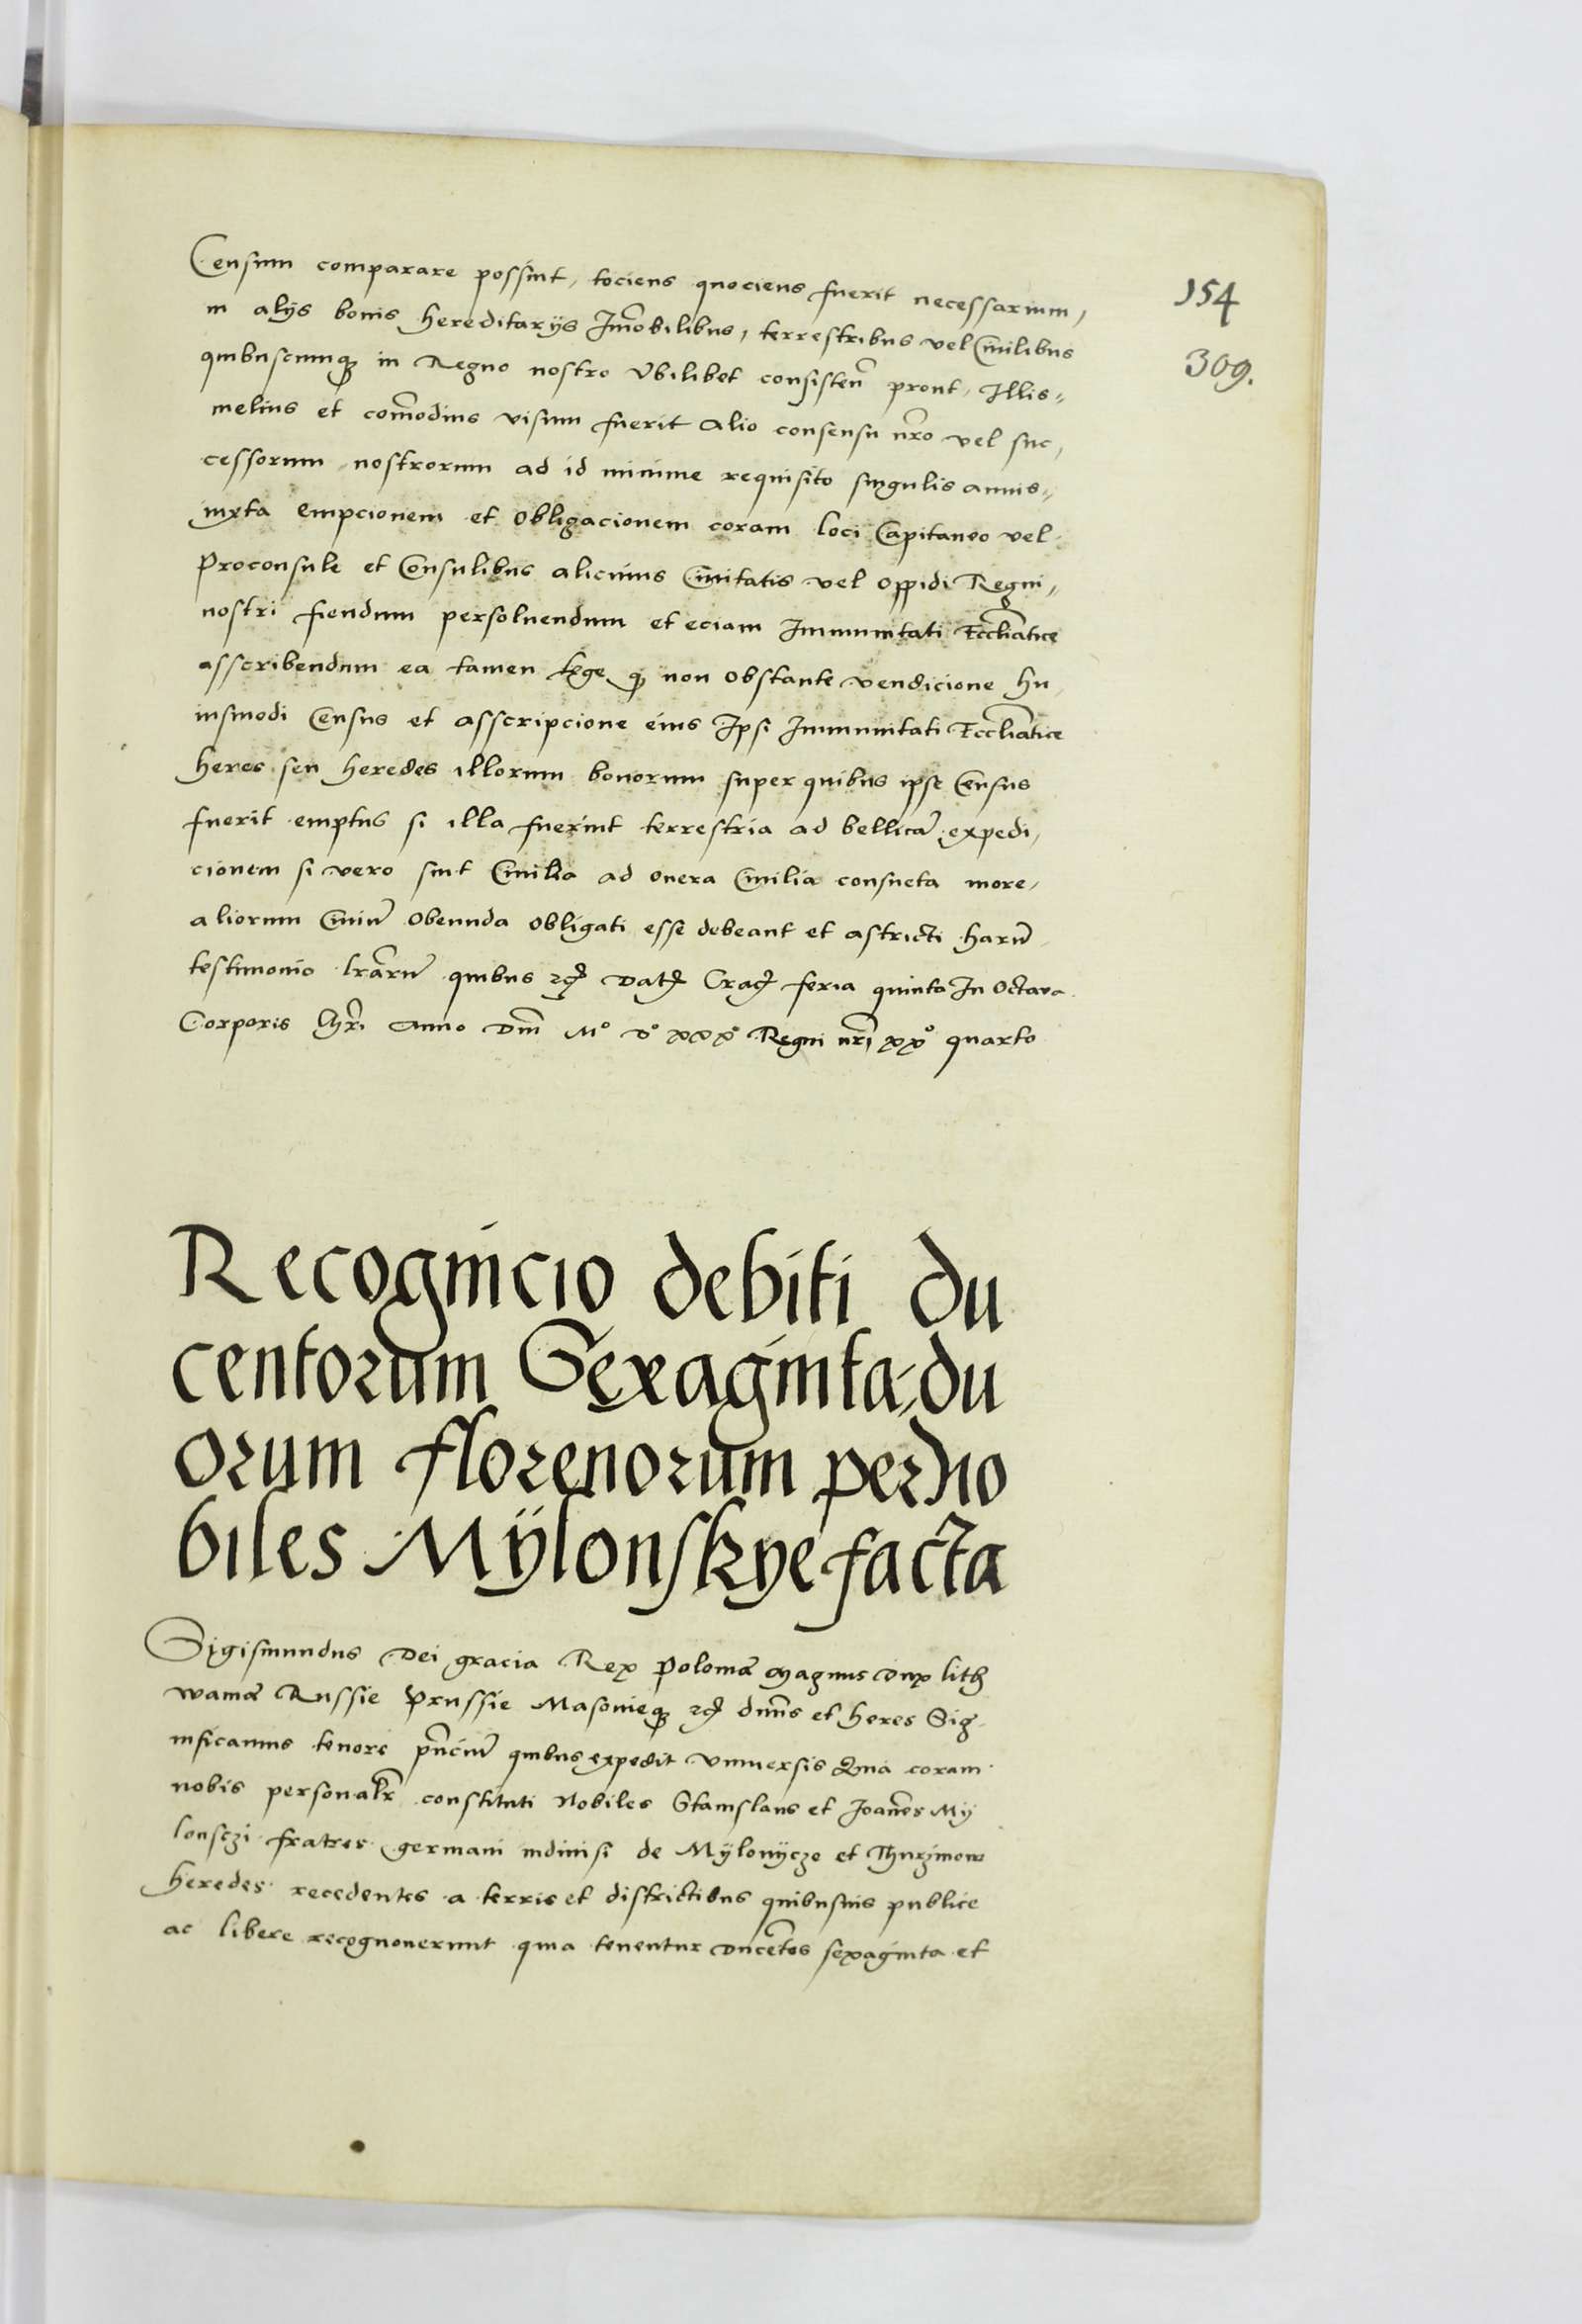 Censum comparare possint, tociens quociens fuerit necessarium,
154
in alijs bonis hereditarijs Im̃obilibus, terrestribus vel Ciuilibus
309.
quibuscumqꝫ in Regno nostro Vbilibet consisteñ prout Illis⸗
melius et com̃odius visum fuerit Alio consensu nr̃o vel suc,
cessorum nostrorum ad id minime requisito singulis annis⸗
iuxta Empcionem et Obligacionem coram loci Capitaneo vel
Proconsule et Consulibus alicuius Ciuitatis vel Oppidi Regni⸗
nostri fiendum persoluendum et eciam Immunitati Eccliãtice
asscribendum ea tamen lege qꝫ non Obstante vendicione hu,
iusmodi Census et asscripcione eius Ipsi Immunitati Eccliãtice
heres seu heredes illorum bonorum super quibus ipse Census
fuerit emptus si illa fuerint terrestria ad bellicã expedi,
cionem si vero sint Ciuilia ad onera Ciuilia consueta more,
aliorum Ciuiũ Obeunda Obligati esse debeant et astricti harũ
testimonio lrãrũ quibus ꝛcꝭ Datꝭ Cracꝭ feria quinta In Octava
Corporis Chr̃i Anno Dñi Mº Vº xxxº Regni nr̃i xxº quarto
Recognicio debiti du
centorum Sexaginta⸗du
orum florenorum per no
biles Mÿlonskye facta
Sigismundus Dei gracia Rex Poloniæ Magnus Dux lith
waniæ Russie Prussie Masouieqꝫ ꝛcꝭ dñus et heres Sig
nificamus tenore pñciũ quibus expedit Vniuersis Quia coram
nobis personalr̃ constituti Nobiles Stanislaus et Joañes Mÿ
lonsczi fratres germani indiuisi de Mÿlonÿcze et Thurzinow
heredes recedentes a terris et districtibus quibusuis publice
ac libere recognouerunt quia tenentur Ducẽtos sexaginta et